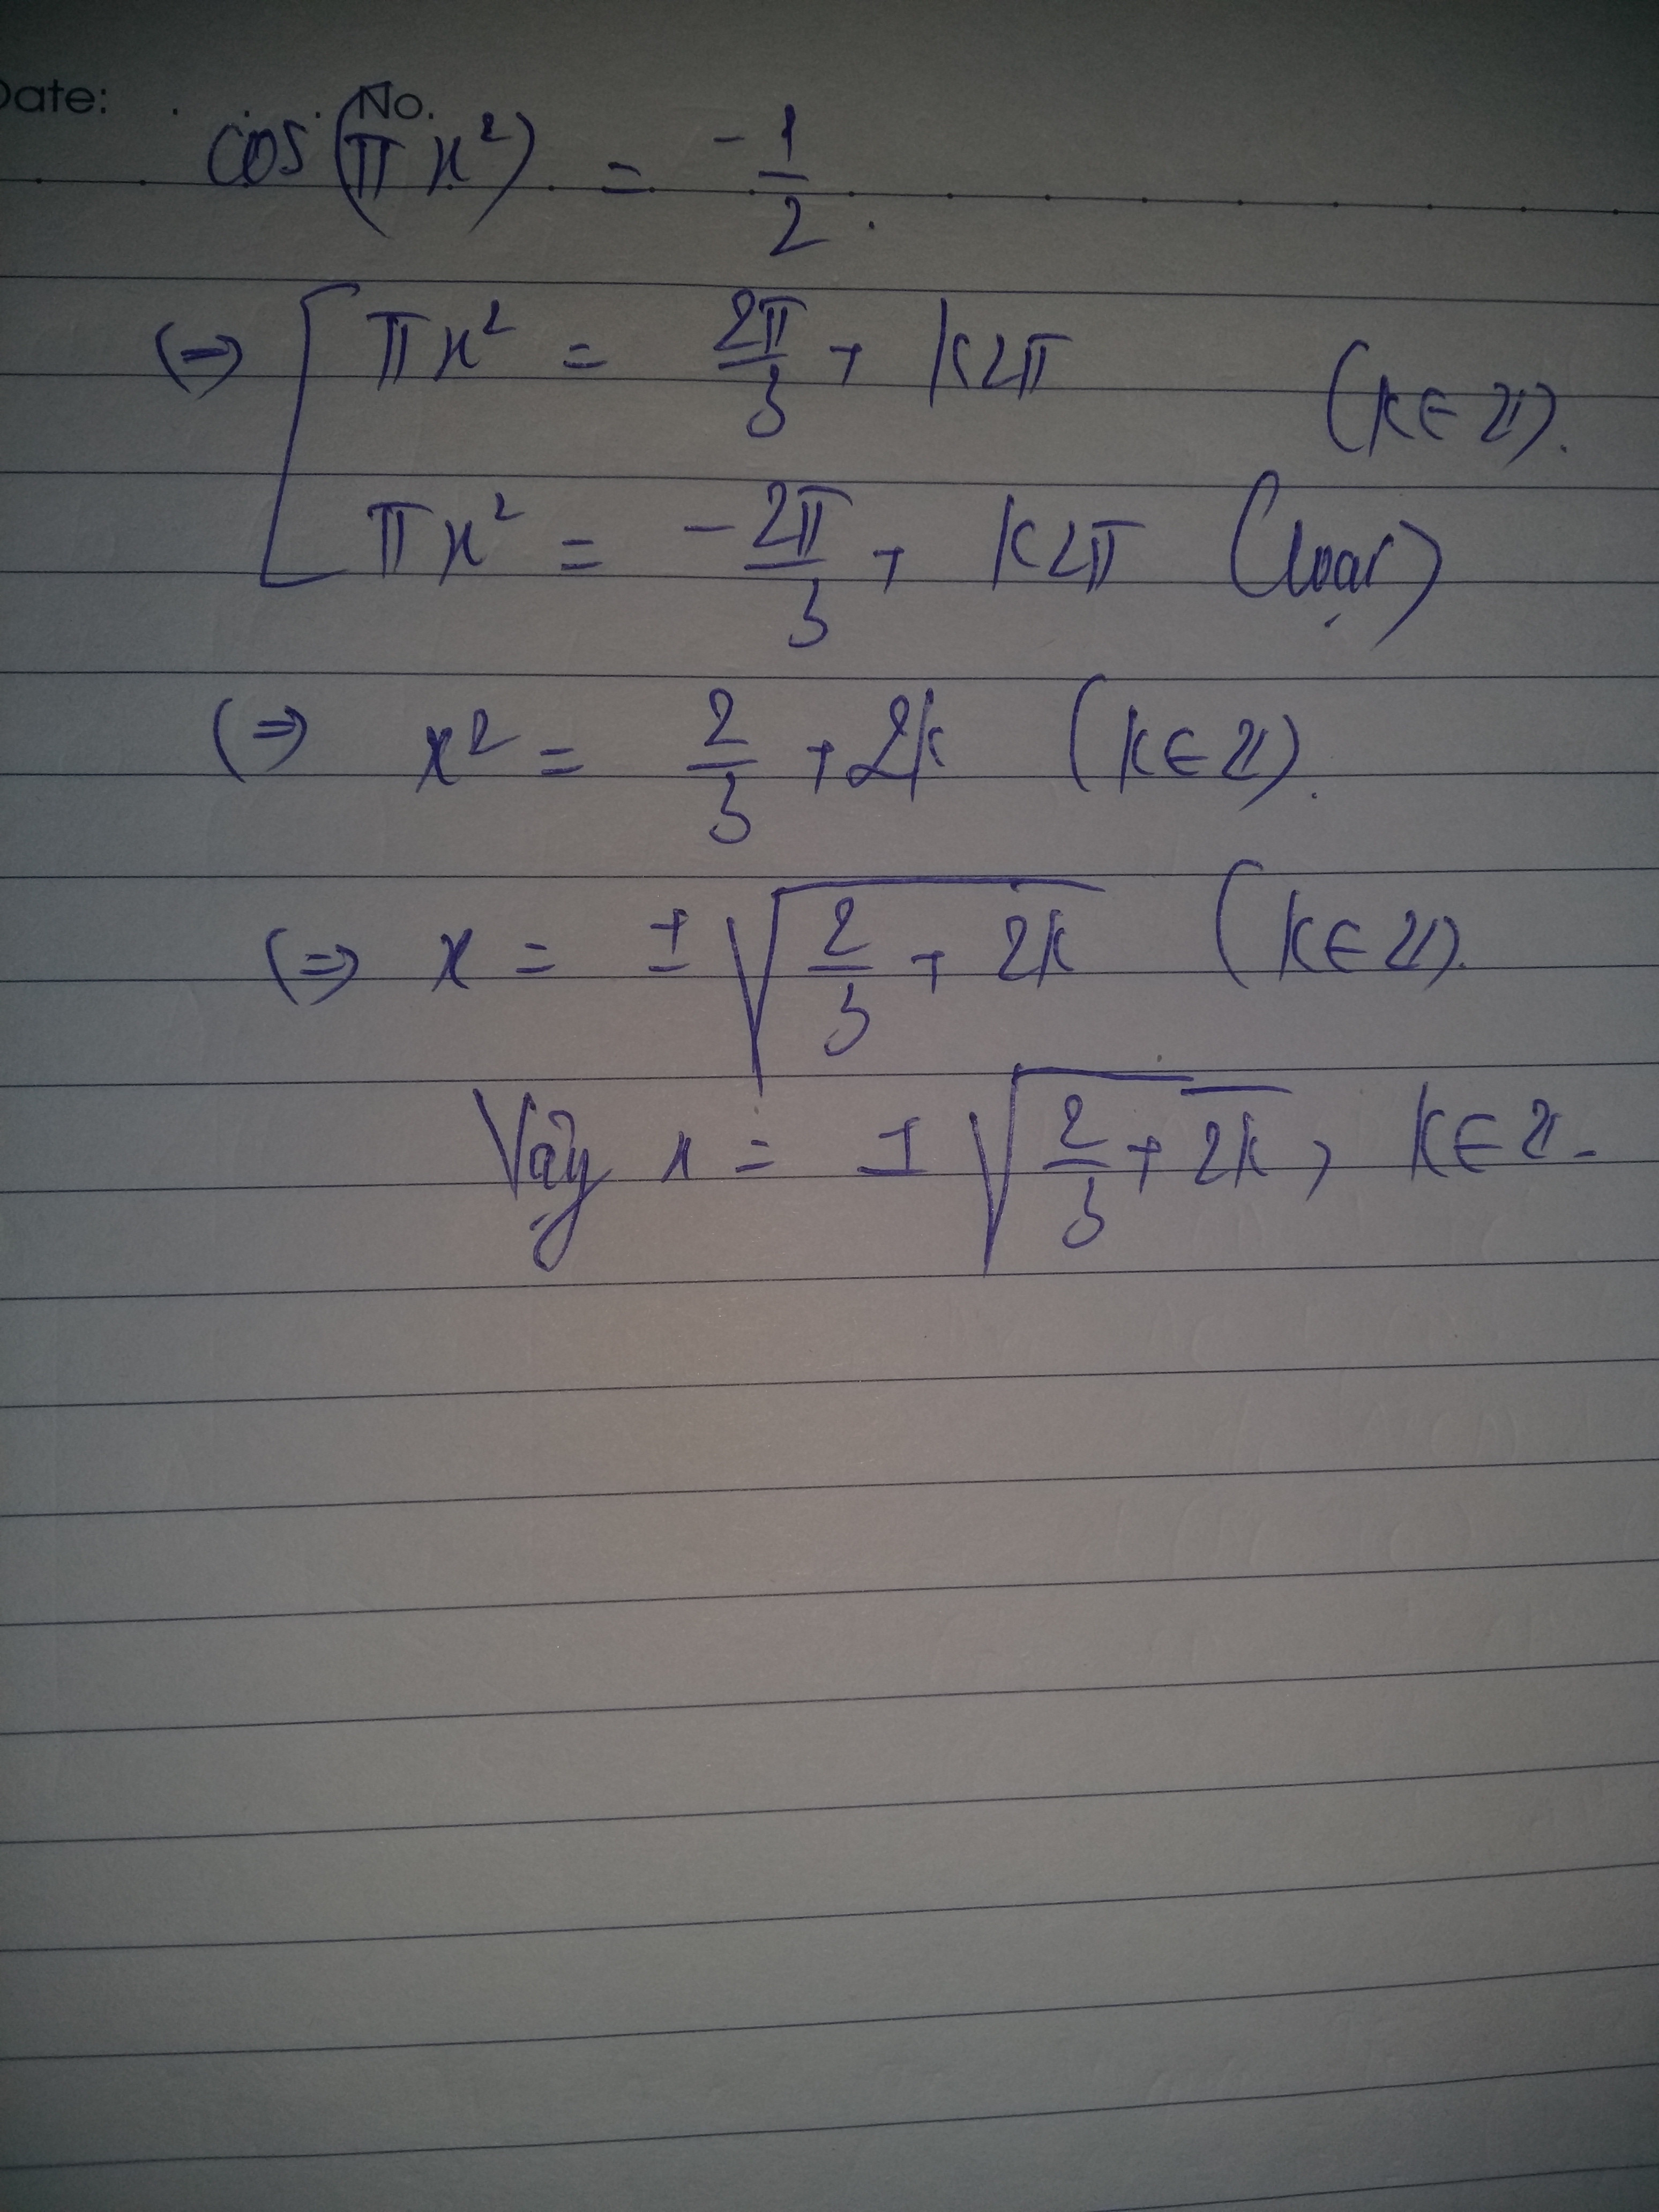 Date: . . . . No.
cos(πx²) = -1/2.
(=>) [ πx² = 2π/3 + k2π (k∈Z).
πx² = -2π/3 + k2π (loại)
(=>) x² = 2/3 + 2k (k∈Z).
(=>) x = ±√(2/3 + 2k) (k∈Z).
Vậy x = ±√(2/3 + 2k), k∈Z.